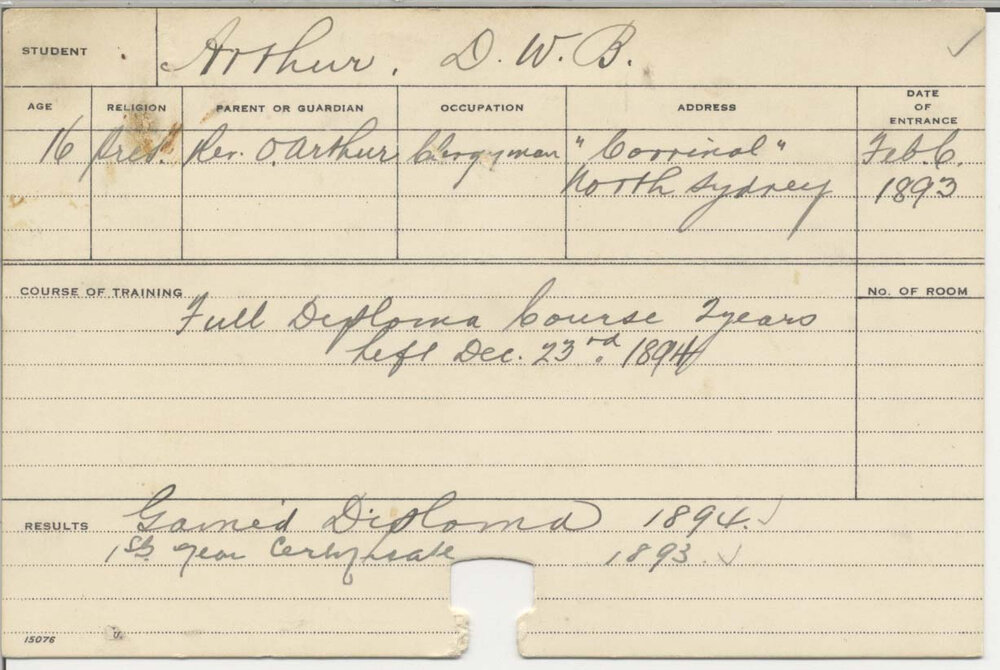 STUDENT Arthur, D. W. B.
AGE RELIGION PARENT OR GUARDIAN OCCUPATION ADDRESS DATE OF ENTRANCE
16 Pres. Rev. O. Arthur Clergyman "Corrinal" Feb. 6.
North Sydney 1893
COURSE OF TRAINING No. OF ROOM
Full Diploma Course 2 years
Left Dec. 23rd. 1894
RESULTS Gained Diploma 1894.
1st year Certificate 1893.
15076 U.